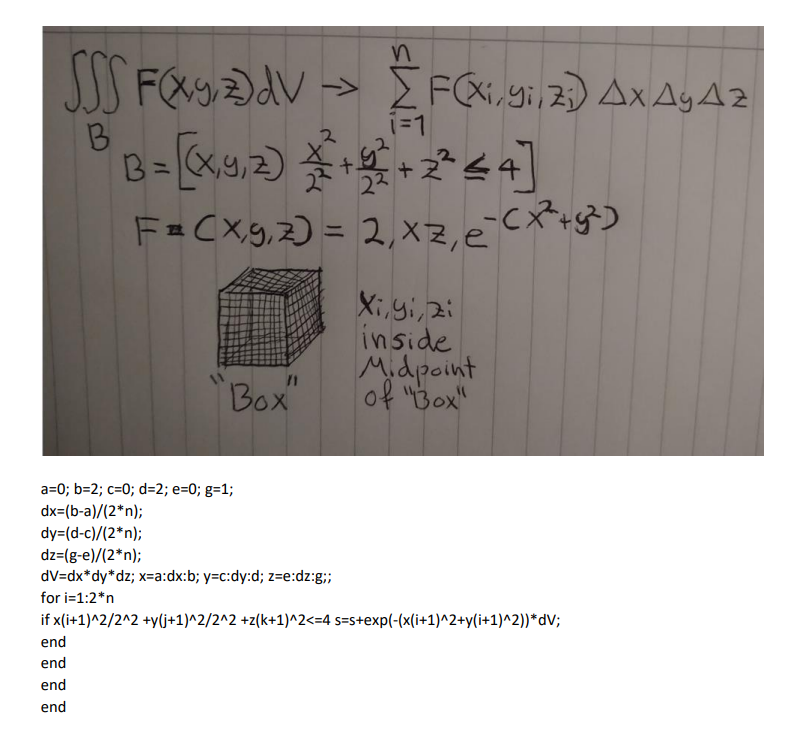 ∭_B F(x,y,z)dV → ∑_{i=1}^{n} F(xi,yi,zi) Δx Δy Δz
B = [(x,y,z) x²/2² + y²/2² + z² ≤ 4]
F = (x,y,z) = 2, xz, e^-(x²+y²)
xi, yi, zi
inside
Midpoint
of "Box"
"Box"
a=0; b=2; c=0; d=2; e=0; g=1;
dx=(b-a)/(2*n);
dy=(d-c)/(2*n);
dz=(g-e)/(2*n);
dV=dx*dy*dz; x=a:dx:b; y=c:dy:d; z=e:dz:g;;
for i=1:2*n
if x(i+1)^2/2^2 +y(j+1)^2/2^2 +z(k+1)^2<=4 s=s+exp(-(x(i+1)^2+y(i+1)^2))*dV;
end
end
end
end